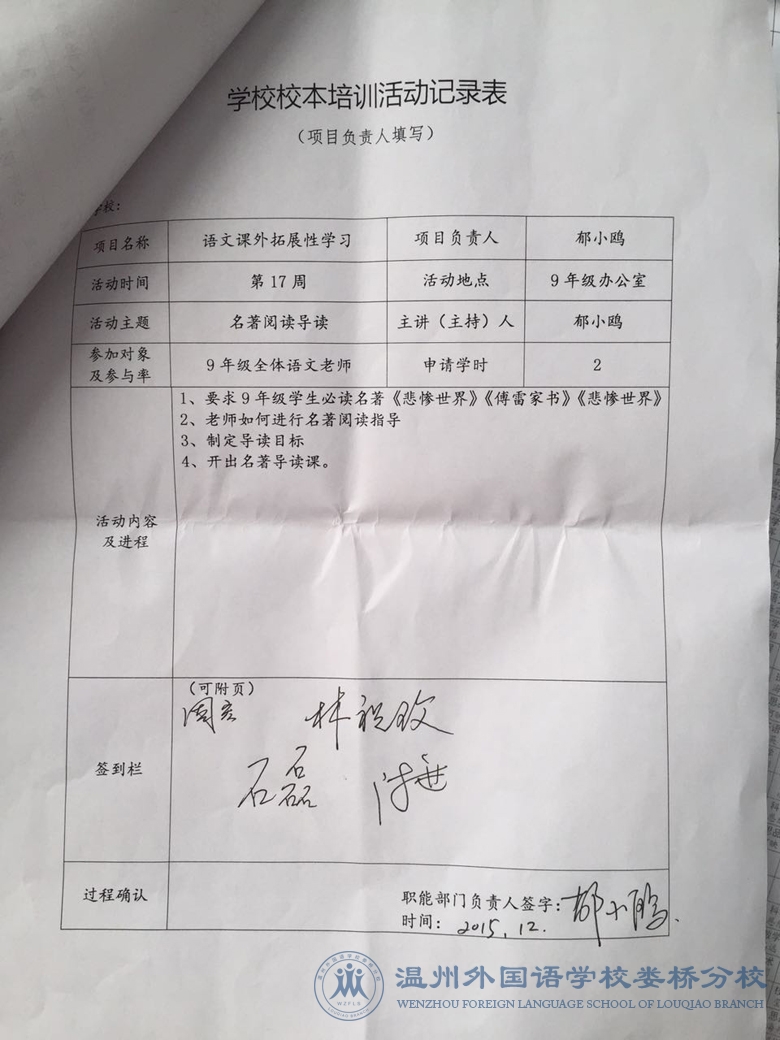 学校校本培训活动记录表
（项目负责人填写）
学校：
项目名称 语文课外拓展性学习 项目负责人 郁小鸥
活动时间 第17周 活动地点 9年级办公室
活动主题 名著阅读导读 主讲（主持）人 郁小鸥
参加对象
及参与率 9年级全体语文老师 申请学时 2
1、要求9年级学生必读名著《悲惨世界》《傅雷家书》《悲惨世界》
2、老师如何进行名著阅读指导
3、制定导读目标
4、开出名著导读课。
活动内容
及进程
（可附页）
石磊
签到栏
过程确认
职能部门负责人签字：郁小鸥
时间：2015.12.
温州外国语学校娄桥分校
WENZHOU FOREIGN LANGUAGE SCHOOL OF LOUQIAO BRANCH